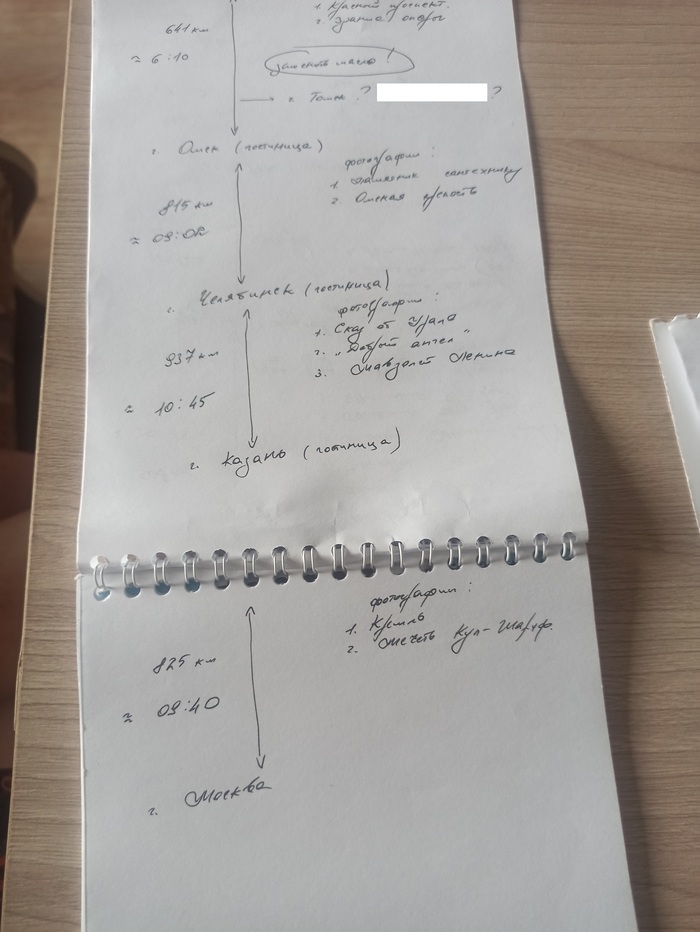 1. Красный проспект.
2. Здание оперы
641 км
≈ 6:10
заменить масло!
г. Томск ? ?
г. Омск (гостиница)
фотографии :
1. сантехнику
2. Омская крепость
815 км
≈ 09:02
г. Челябинск (гостиница)
фотографии :
1. Сказ от Урала
2. "Добрый ангел"
3. Мавзолей Ленина
937 км
≈ 10:45
г. Казань (гостиница)
фотографии :
1. Кремль
2. Мечеть Кул-Шариф.
825 км
≈ 09:40
г. Москва